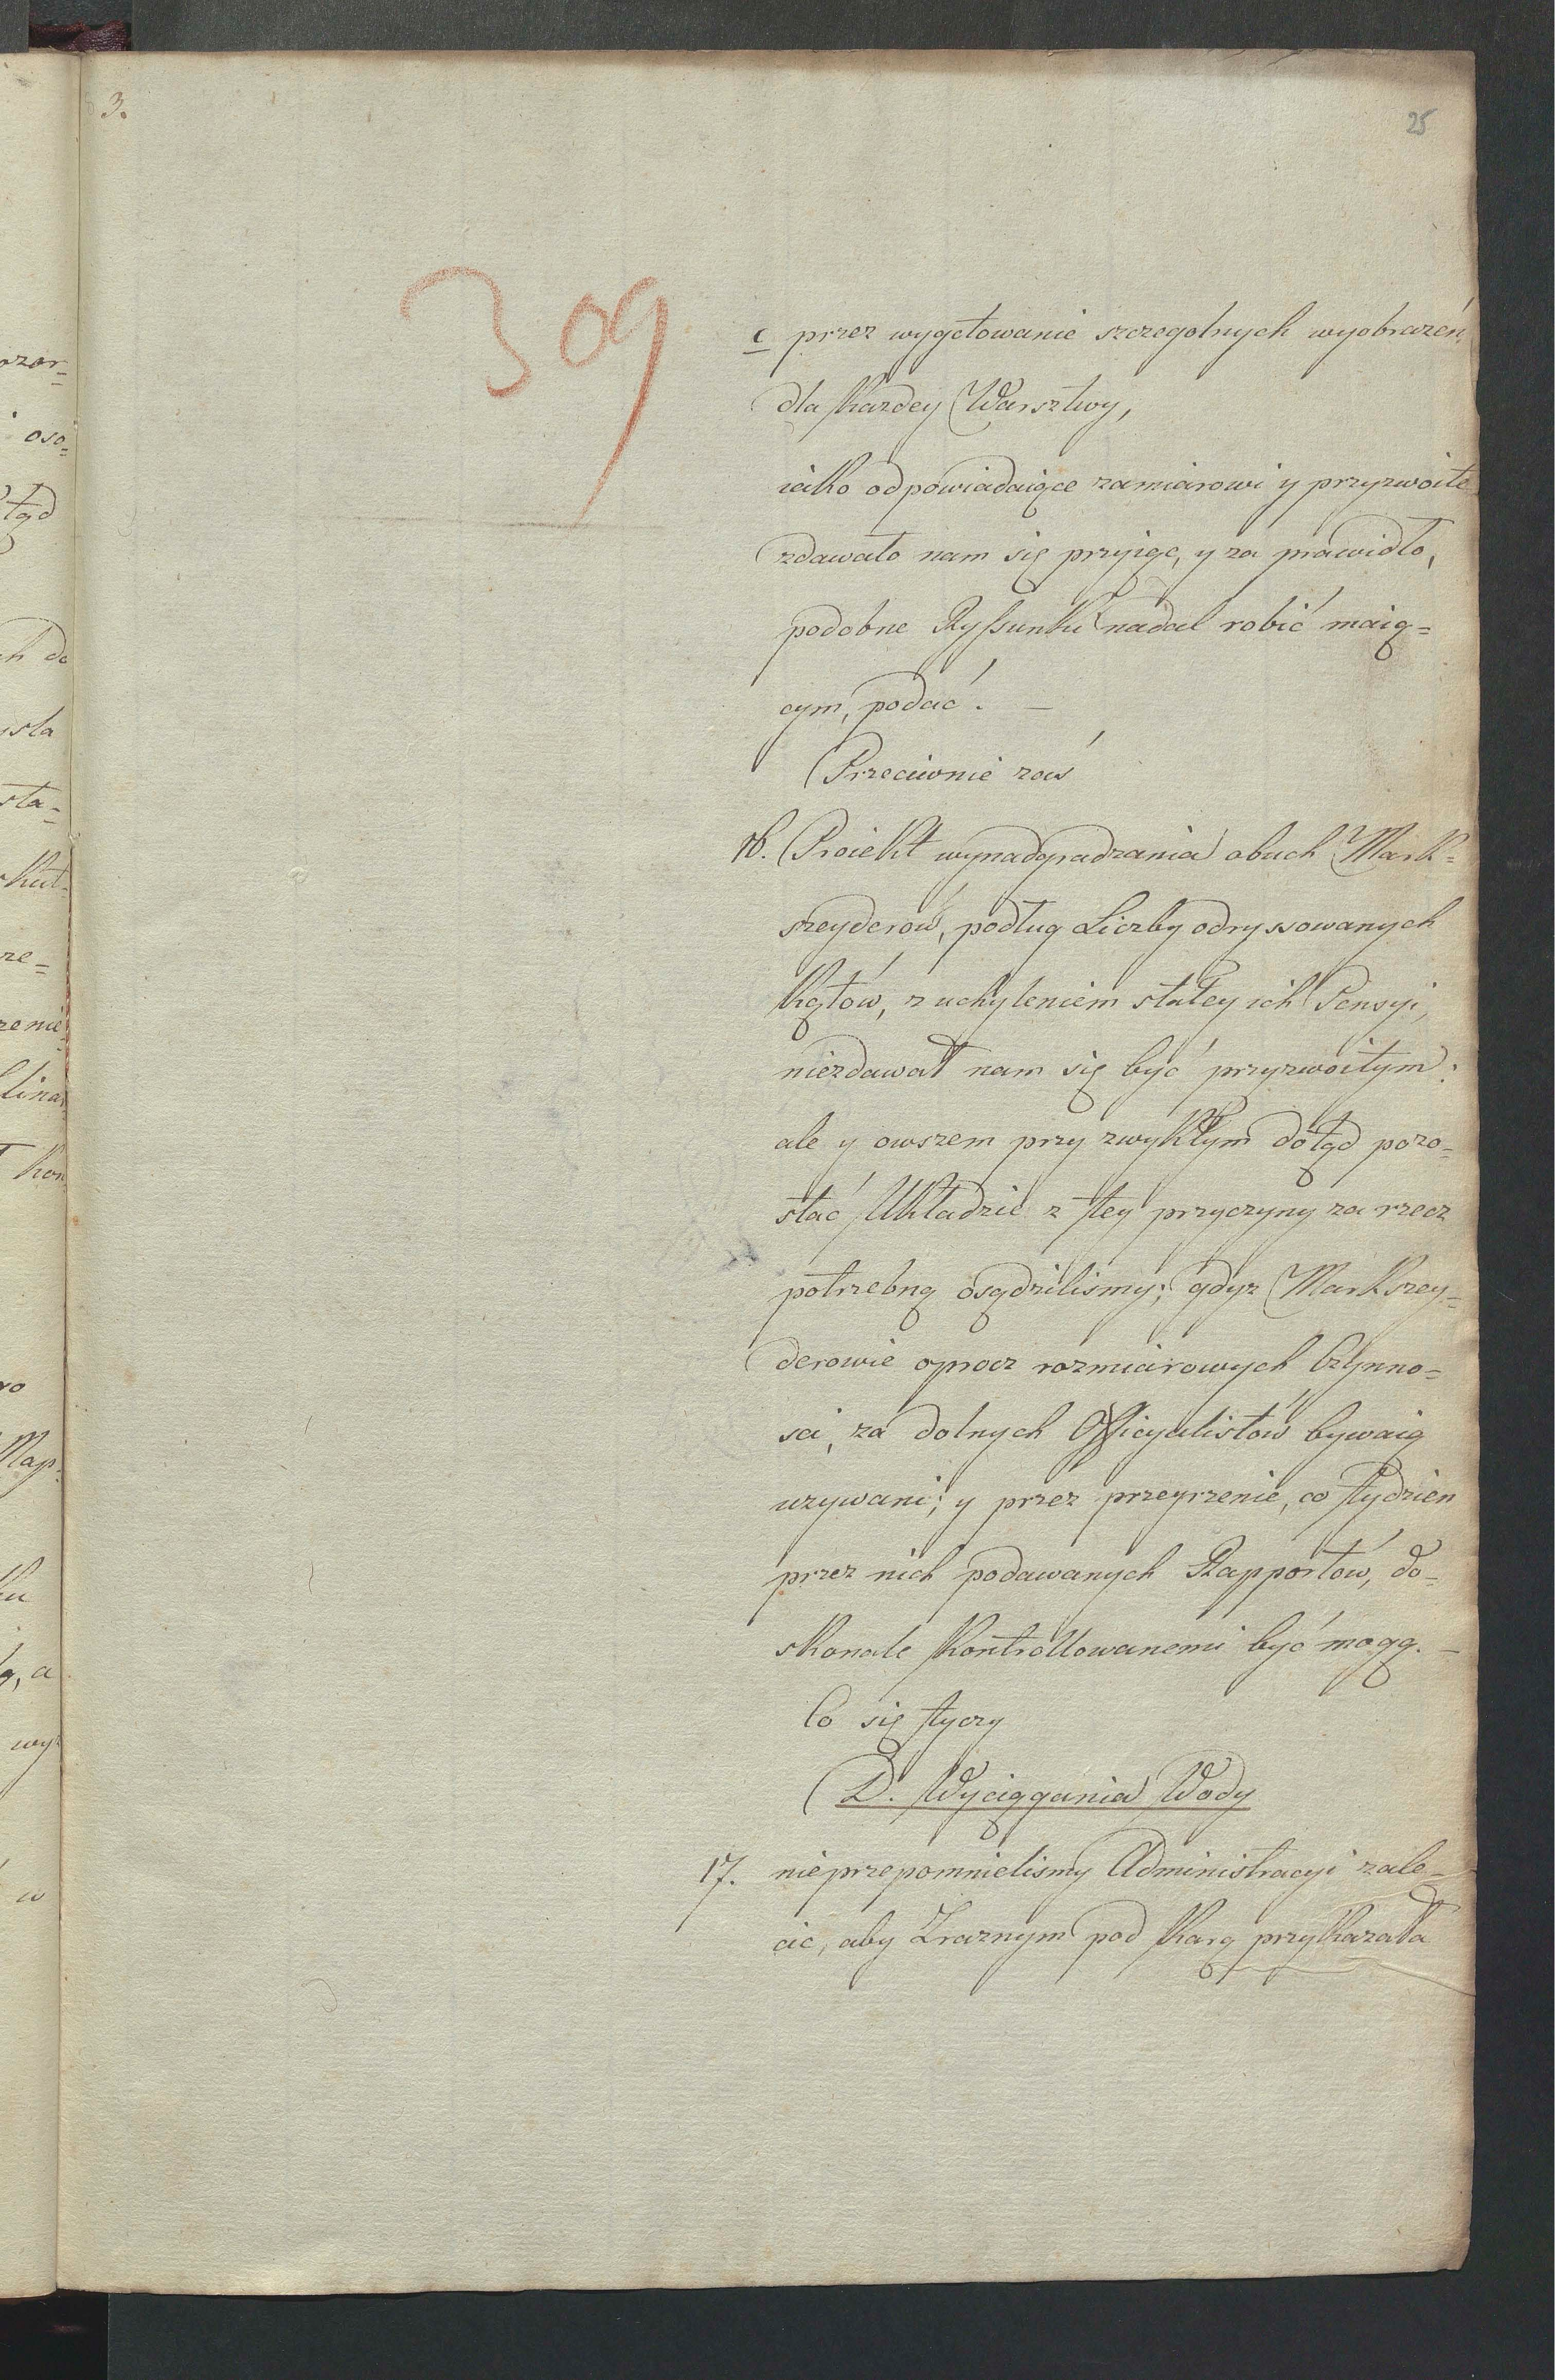 3.
25
309
c przez wygotowanie szczegolnych wyobrazeń,
dla każdey Warsztwy,
iako odpowiadaiące zamiarowi y przyzwoite
zdawało nam się przyiąc, y za prawidło,
podobne Ryssunki nadal robić maią=
cym, podać. —
Przeciwnie zaś
16. Proiekt wynadgradzania obuch Mark=
szeyderow, podług Liczby odryssowanych
Kątów, z uchyleniem stałey ich Pensyi,
niezdawał nam się być przyzwoitym:
ale y owszem przy zwykłym dotąd pozo=
stać Układzie z tey przyczyny za rzecz
potrzebną osądzilismy; gdyz Markszey=
derowie oprocz rozmiarowych Czynno=
sci, za dolnych Officyalistów bywaią
uzywani; y przez przeyrzenie, co tydzien
przez nich podawanych Rapportów, do=
skonale kontrollowanemi być mogą. —
Co się tyczy
D. Wyciągania Wody
17. nieprzepomnielismy Administracyi zale=
cic, aby Zraznym pod karą przykazała
ozor=
oso=
tąd
ch do
sta=
kut=
ze=
zenie
Map=
g, a
wy=
w